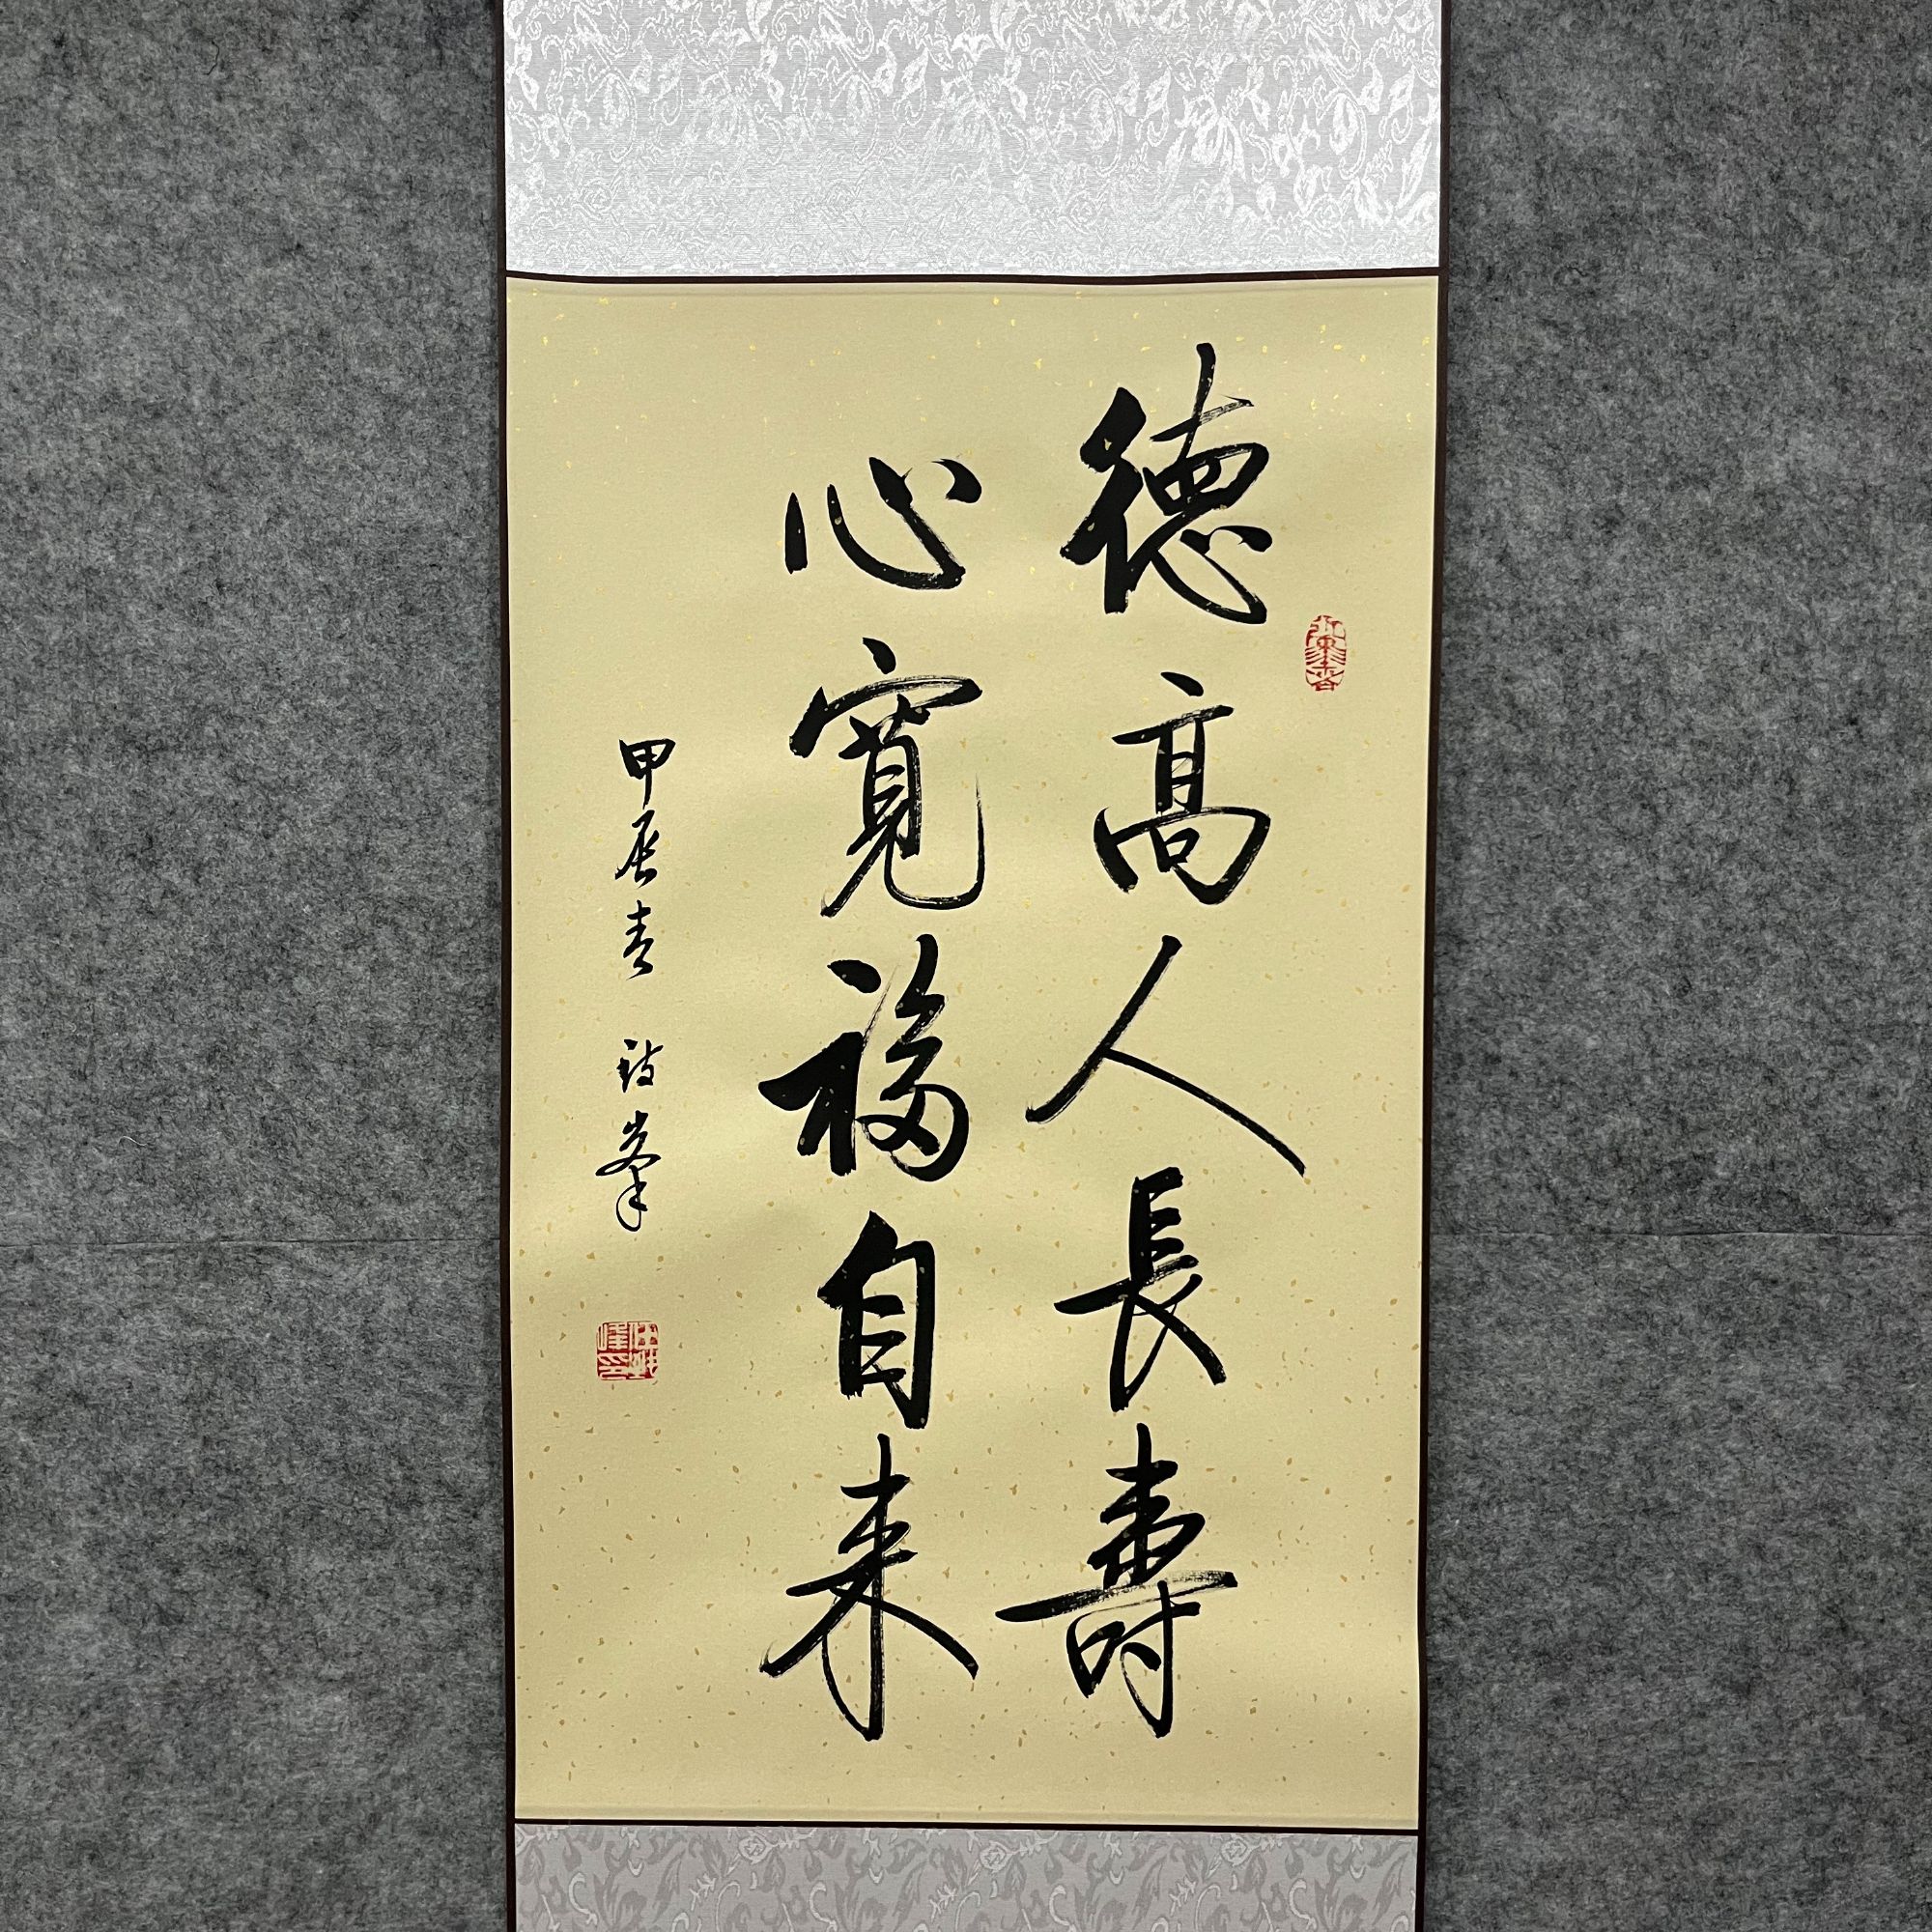 德高人長壽
心寬福自来
甲辰春